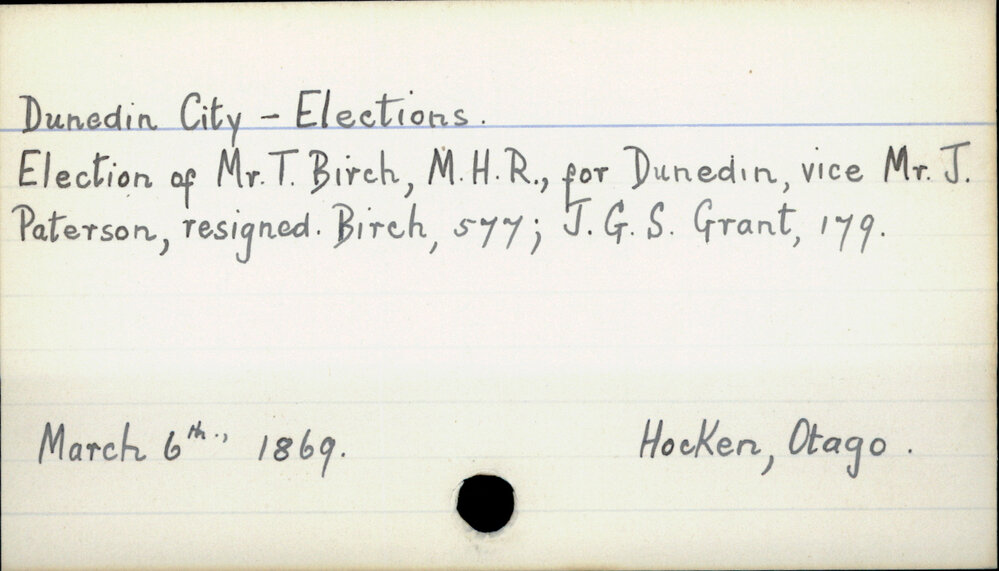 Dunedin City - Elections.
Election of Mr. T. Birch, M.H.R., for Dunedin, vice Mr. J.
Paterson, resigned. Birch, 577; J. G. S. Grant, 179.
March 6th., 1869.
Hocken, Otago.